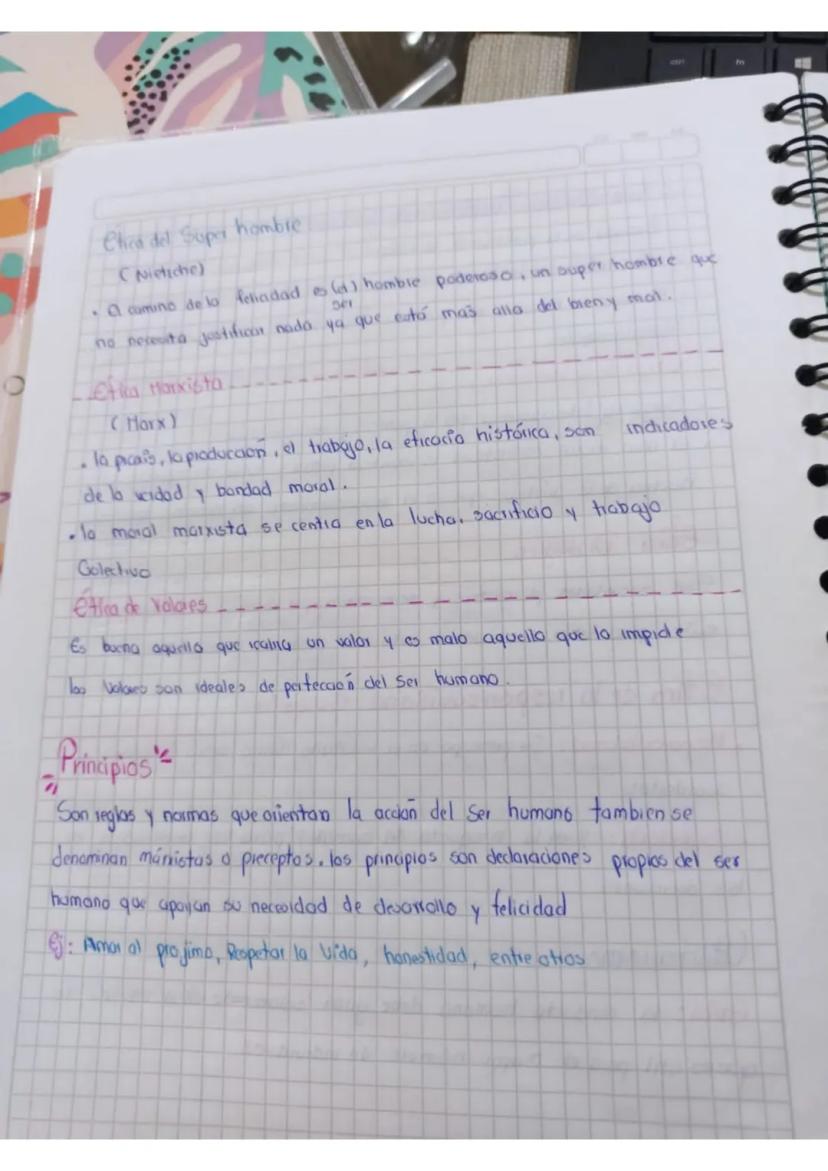 Etica del Super hombre
(Nietiche)
• a camino de la felicidad es (el) hombre poderoso, un super hombre que
ser
no necesita justificar nada ya que está mas alla del bien y mal.
Etica Marxista
(Marx)
• la praxis, la producción, el trabajo, la eficacia histórica, son indicadores
de la verdad y bondad moral.
• la moral marxista se centra en la lucha, sacrificio y trabajo
Colectivo
ética de Valores
Es buena aquello que realiza un valor y es malo aquello que lo impide
los Valores son ideales de perfección del Ser humano.
Principios
Son reglas y normas que orientan la acción del Ser humano tambien se
denominan o preceptos. los principios son declaraciones propias del ser
humano que apoyan su necesidad de desarrollo y felicidad
Ej: Amor al projimo, Respetar la Vida, honestidad, entre otros
ctrl fn